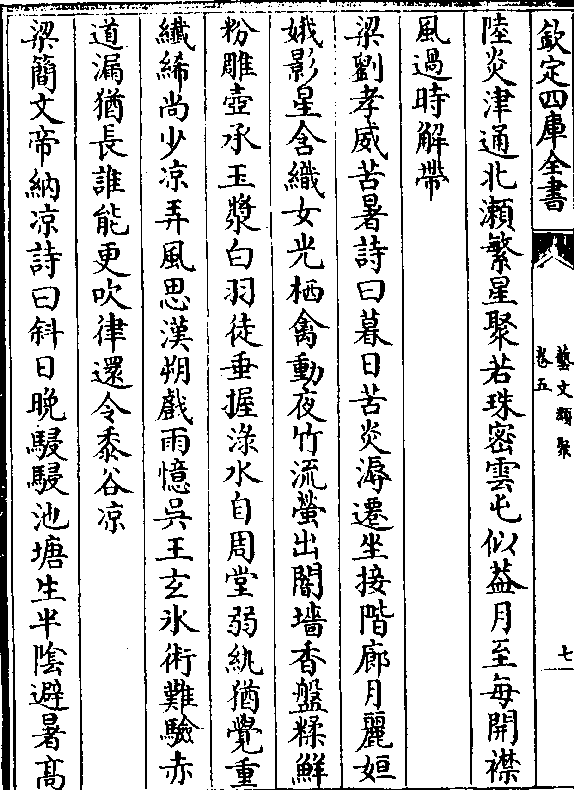 欽定四庫全書
藝文類聚
卷五
七
陸炎津通北瀨繁星聚若珠密雲屯似葢月至每開襟
風過時解帶
梁劉孝威苦暑詩曰暮日苦炎溽遷坐接階廊月麗姮
娥影星含織女光栖禽動夜竹流螢出闇墻香盤糅鮮
粉雕壺承玉漿白羽徒垂握淥水自周堂弱紈猶覺重
纎絺尚少凉弄風思漢朔戲雨憶吳王玄氷術難驗赤
道漏猶長誰能更吹律還令黍谷凉
梁簡文帝納凉詩曰斜日晚駸駸池塘生半陰避暑髙